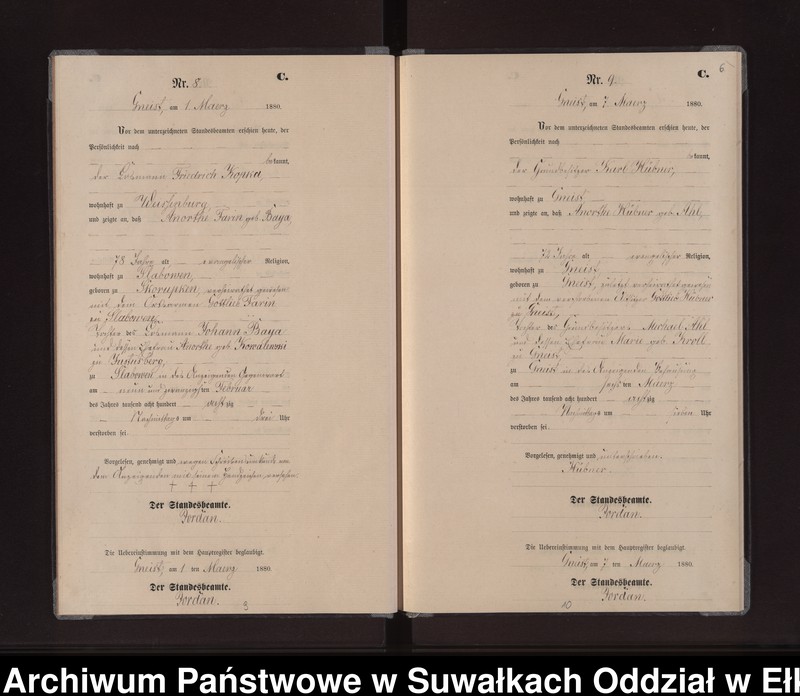 Nr. 8. C.
Gneist, am 1. Maerz 1880.
Vor dem unterzeichneten Standesbeamten erschien heute, der
Persönlichkeit nach
bekannt,
der Losmann Friedrich Kopka,
wohnhaft zu Weissenburg,
und zeigte an, daß Anorthe Farin geb. Baya,
78 Jahre alt evangelischer Religion,
wohnhaft zu Slabowen,
geboren zu Skorupken, verheirathet gewesen
mit dem Ortsarmen Gottlieb Farin
zu Slabowen,
Tochter des Losmann Johann Baya
und dessen Ehefrau Anorthe geb. Kowalewski
zu
zu Slabowen in des Anzeigenden Gegenwart
am neun und zwanzigsten Februar
des Jahres tausend acht hundert achtzig
Nachmittags um drei Uhr
verstorben sei.
Vorgelesen, genehmigt und wegen Schreibensunkunde von
dem Anzeigenden mit seinem Handzeichen versehen.
+ + +
Der Standesbeamte.
Jordan.
Die Uebereinstimmung mit dem Hauptregister beglaubigt.
Gneist, am 1 ten Maerz 1880.
Der Standesbeamte.
Jordan.
9
Nr. 9. C. 6
Gneist, am 7. Maerz 1880.
Vor dem unterzeichneten Standesbeamten erschien heute, der
Persönlichkeit nach
bekannt,
der Grundbesitzer Karl Hübner,
wohnhaft zu Gneist
und zeigte an, daß Anorthe Hübner geb. Ahl,
72 Jahre alt evangelischer Religion,
wohnhaft zu Gneist,
geboren zu Gneist, zuletzt verheirathet gewesen
mit dem verstorbenen Gottlieb Hübner
zu Gneist,
Tochter des Grundbesitzers Michael Ahl
und dessen Ehefrau Marie geb. Kroll
zu Gneist,
zu Gneist in des Anzeigenden Behausung
am sechsten Maerz
des Jahres tausend acht hundert achtzig
um sieben Uhr
verstorben sei.
Vorgelesen, genehmigt und unterschrieben.
Hübner.
Der Standesbeamte.
Jordan.
Die Uebereinstimmung mit dem Hauptregister beglaubigt.
Gneist, am 7 ten Maerz 1880.
Der Standesbeamte.
Jordan.
10
Archiwum Państwowe w Suwałkach Oddział w Eł